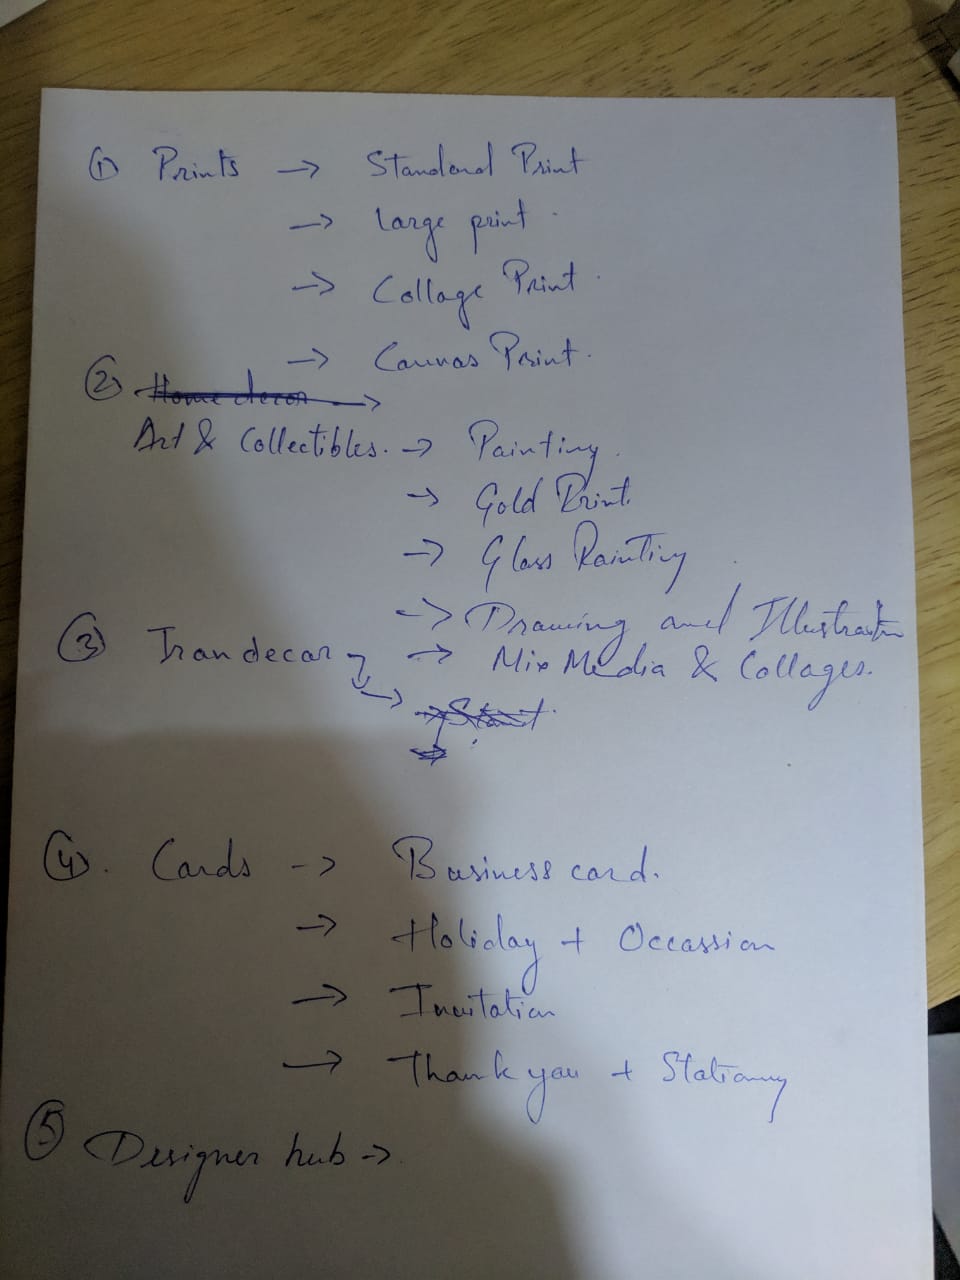 ① Prints → Standard Print
→ Large print.
→ Collage Print.
→ Canvas Print.
② Home decor →
Art & Collectibles. → Painting.
→ Gold Print.
→ Glass Painting
→ Drawing and Illustration
③ Iran decor → Mix Media & Collages.
→ Start.
④. Cards → Business card.
→ Holiday + Occassion
→ Invitation
→ Thank you + Stationary
⑤ Designer hub →